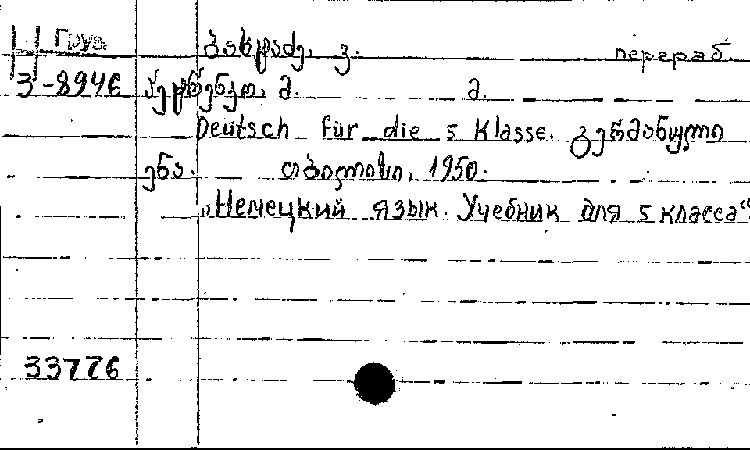 Груз
перераб
3-8946
მ. მ.
Deutsch für die 5 Klasse. გერმანული
ენა. თბილისი, 1950.
„Немецкий язык. Учебник для 5 класса“
33776